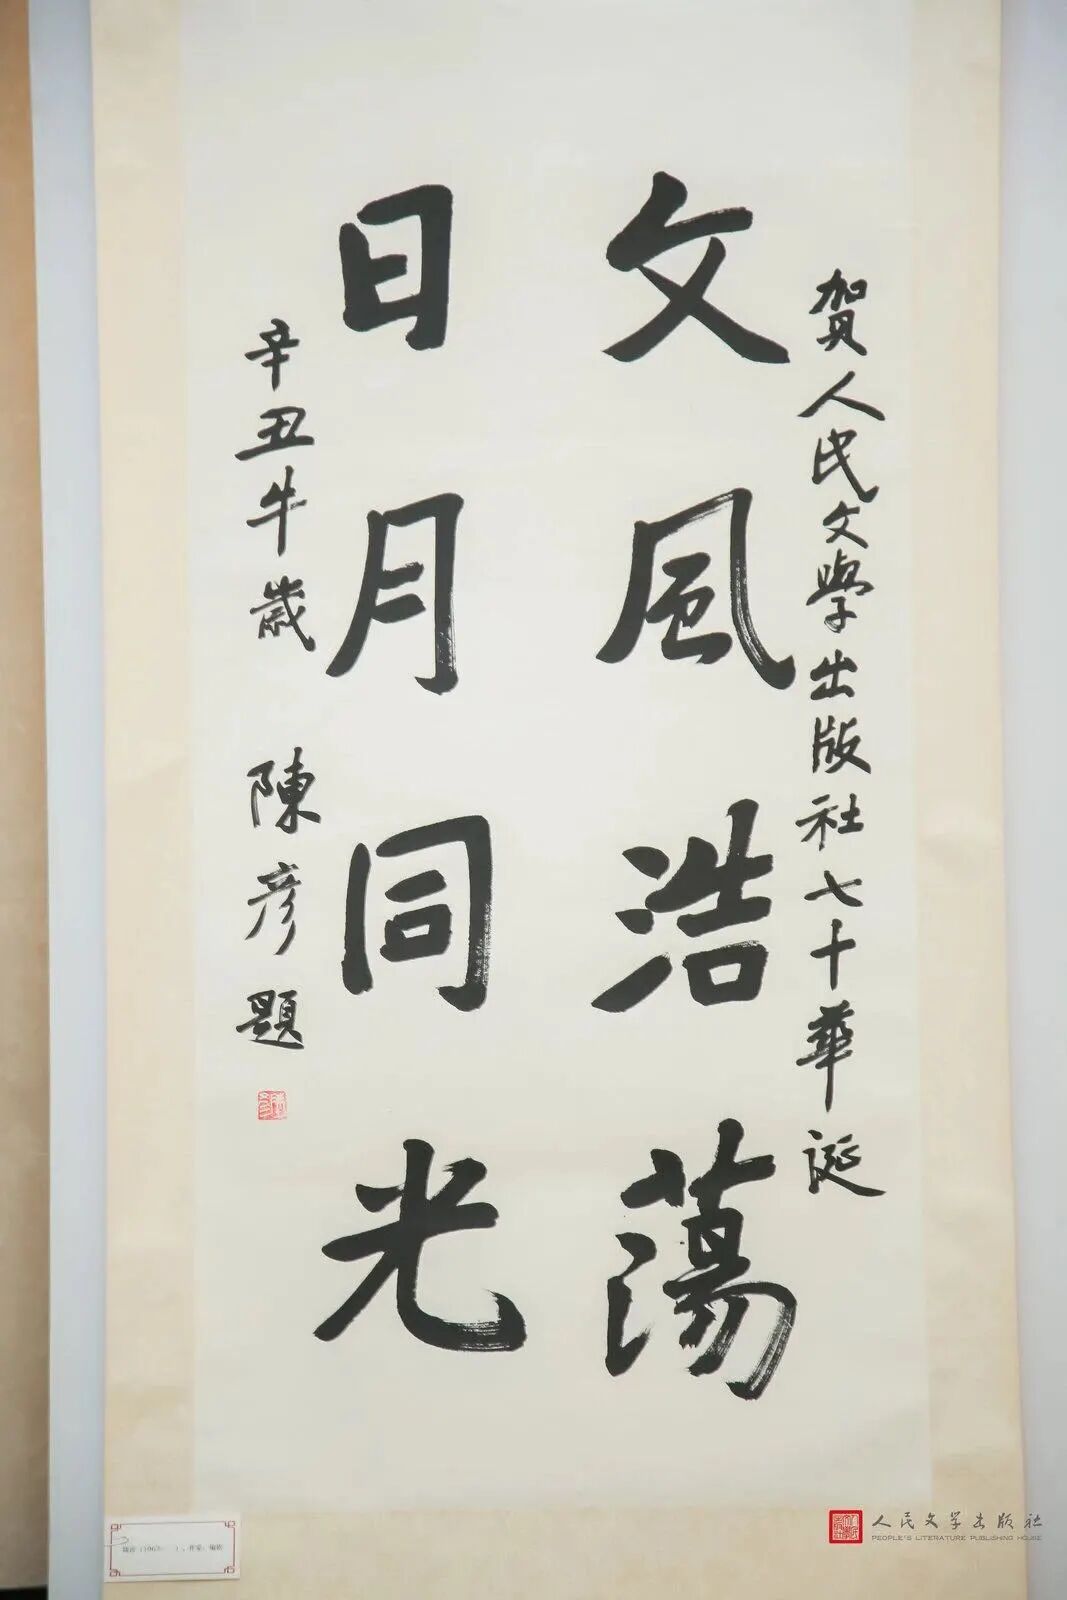 贺人民文學出版社七十華诞
文風浩蕩
日月同光
辛丑牛歲 陳彦題
人民文学出版社
PEOPLE'S LITERATURE PUBLISHING HOUSE